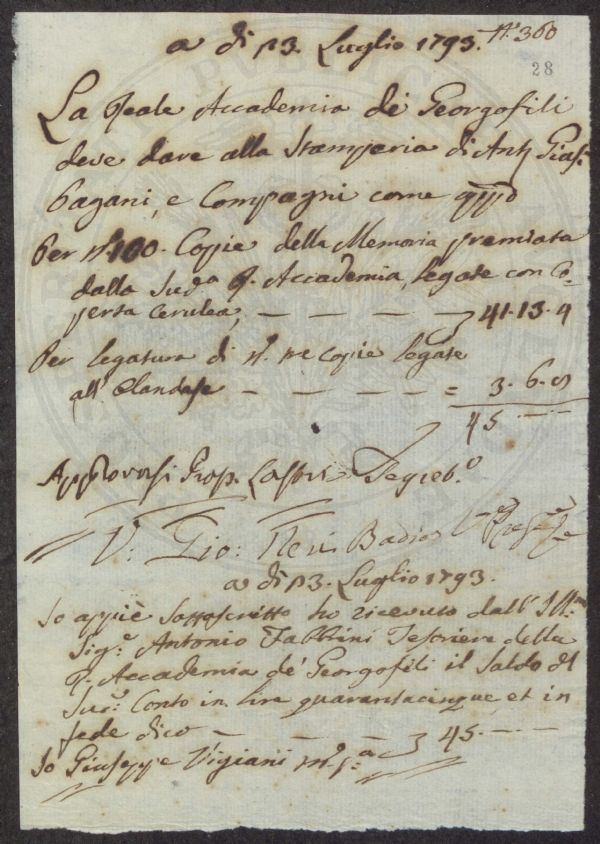 a dì 13. Luglio 1793. N.° 360
28
La Reale Accademia de' Georgofili
deve dare alla Stamperia di Ant. Gius.
Pagani, e Compagni come app.o
Per N.° 100. Copie della Memoria premiata
dalla Sud.a R. Accademia, legate con Co-
perta Cerulea, — — — — 41.13.4
Per legatura di N.° Copie legate
all'Olandese — — — — = 3.6.8
45 -- --
Approvasi Prop. Lastri Segret.o
V: Gio: Neri Badia
a dì 13. Luglio 1793.
Io appiè Sottoscritto ho ricevuto dall'Ill.mo
Sig.re Antonio Fabbrini Tesoriere della
R. Accademia de' Georgofili il Saldo del
Sud.o Conto in lire quarantacinque, et in
fede dico — — — — 45. -- --
Io Giuseppe Vigiani m.o p.a